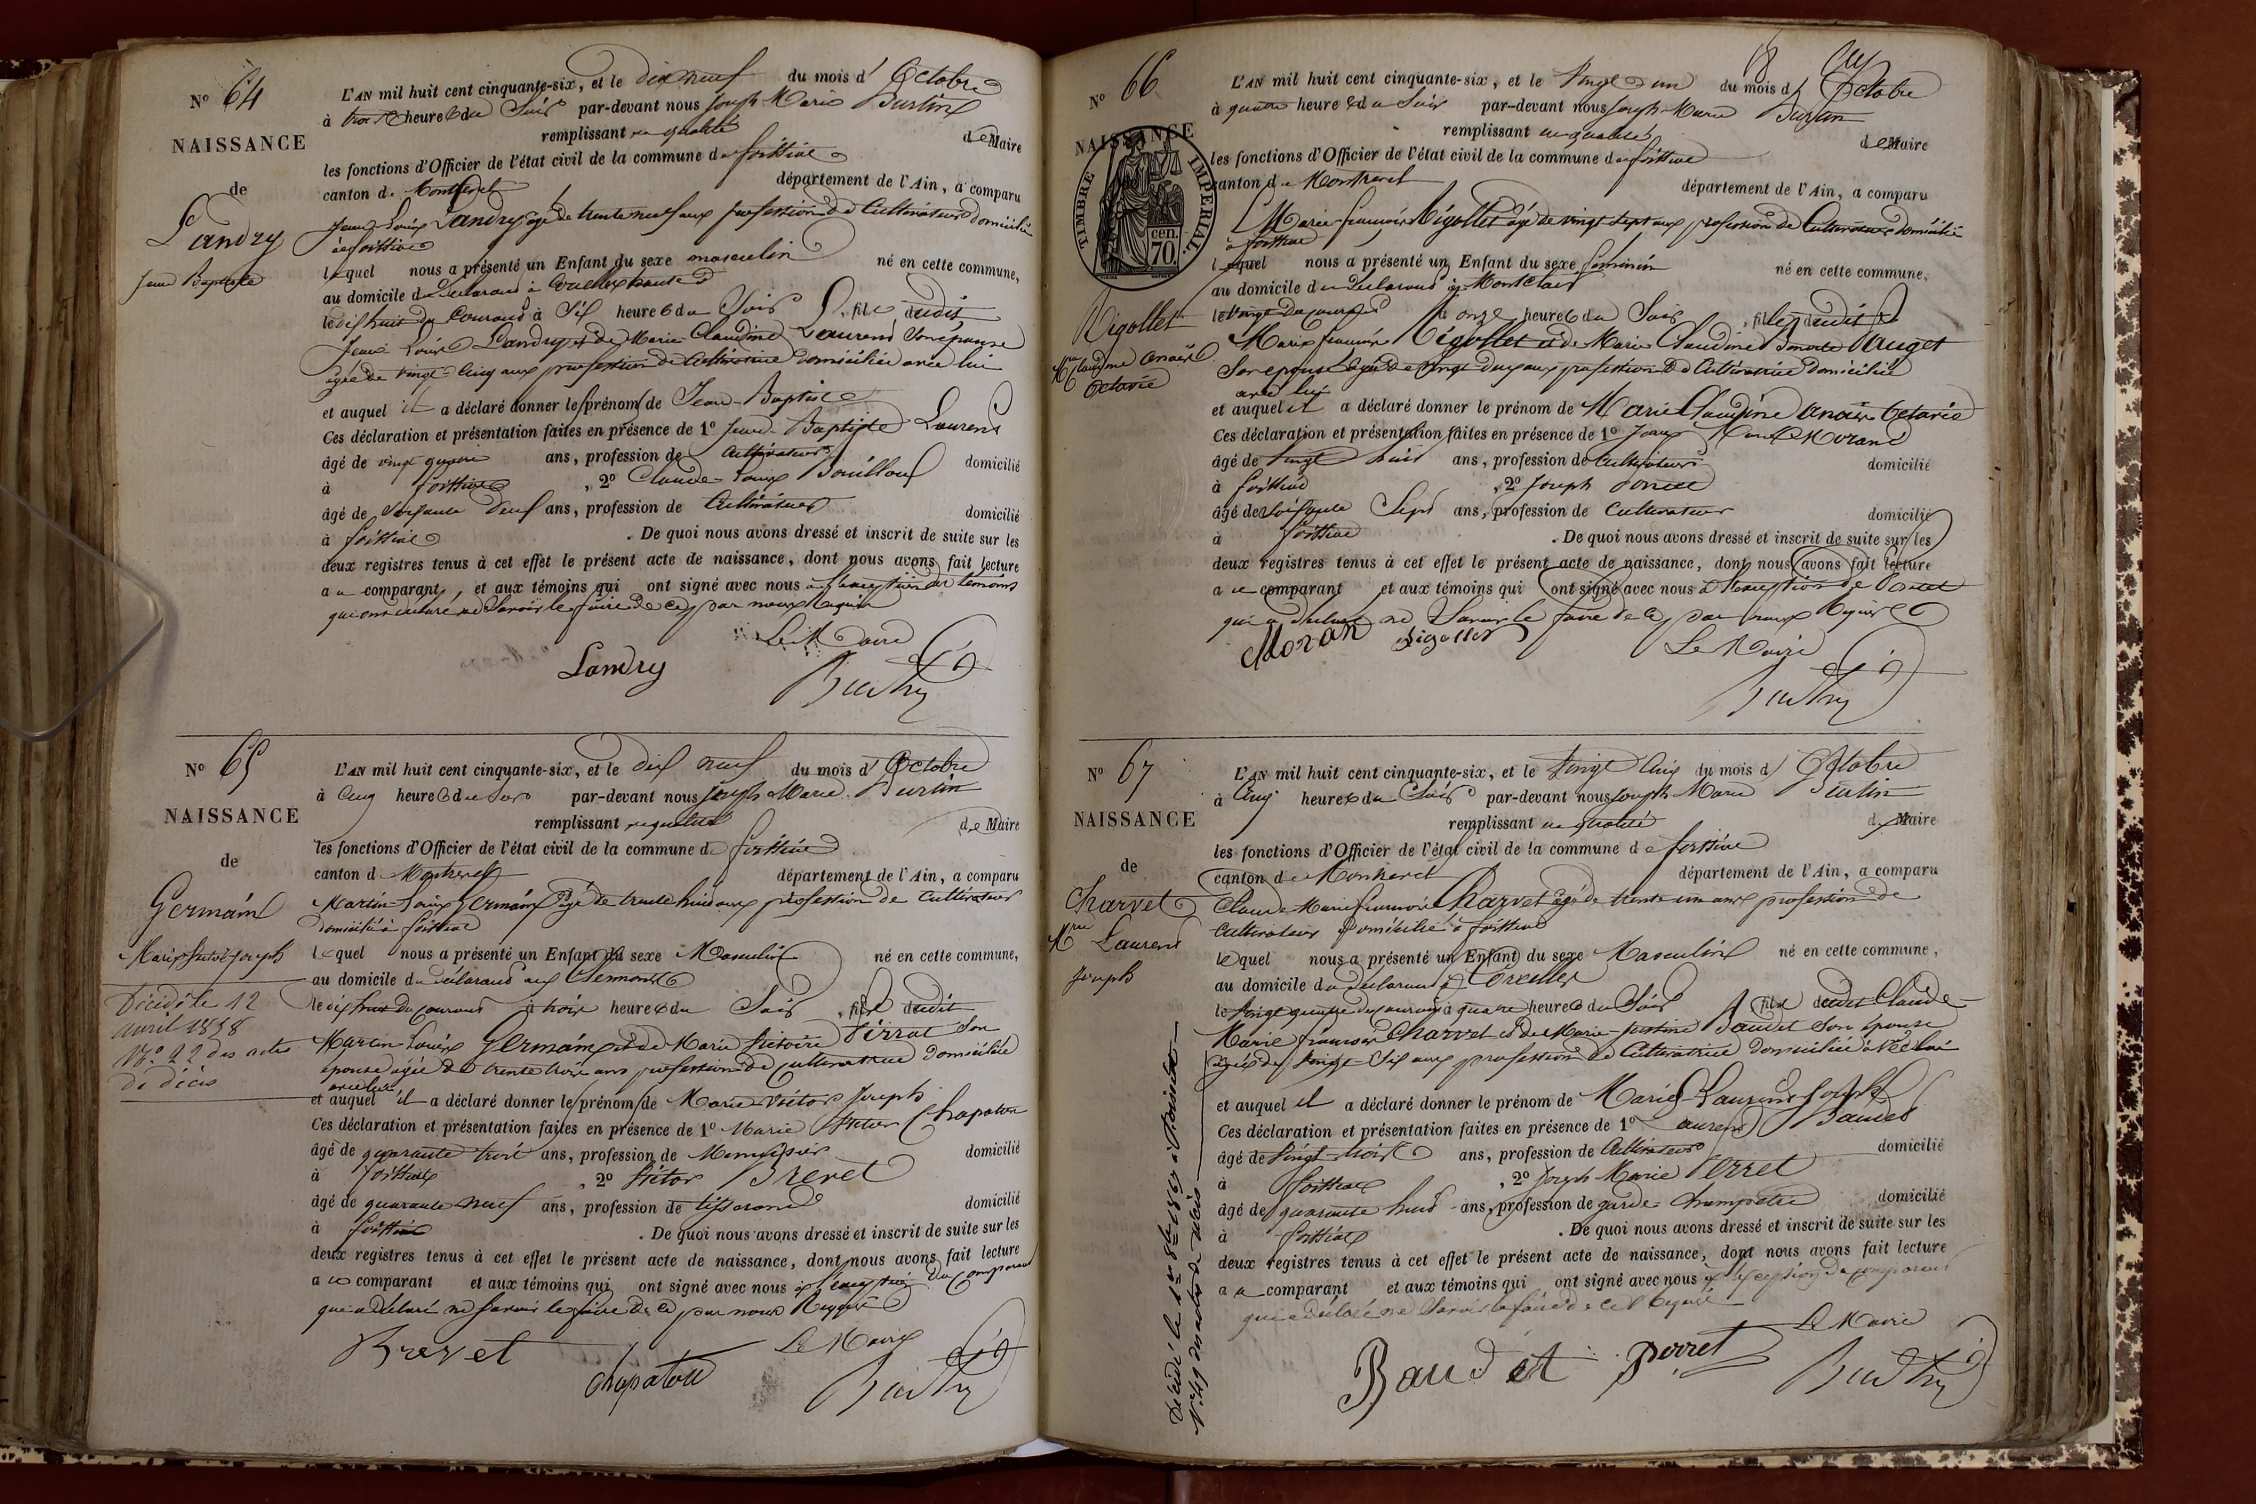 No 64
NAISSANCE
de
Landry
Jean Baptiste
L'AN mil huit cent cinquante-six, et le dix neuf du mois d'Octobre
à trois heures du Soir par-devant nous Joseph Marie
remplissant en qualité de Maire
les fonctions d'Officier de l'état civil de la commune de foissiat
canton de Montrevel département de l'Ain, a comparu
Jean Louis Landry âgé de trente neuf ans profession de Cultivateur domicilié
à foissiat
lequel nous a présenté un Enfant du sexe masculin né en cette commune,
au domicile du declarant à
le dix huit du Courant à Six heures du Soir, fils dudit
Jean Louis Landry et de Marie Claudine Laurent son épouse
âgée de vingt-cinq ans profession de Cultivatrice domiciliée avec lui
et auquel il a déclaré donner le prénom de Jean-Baptiste
Ces déclaration et présentation faites en présence de 1° Jean-Baptiste Laurent
âgé de vingt quatre ans, profession de Cultivateur domicilié
à foissiat, 2° Claude-Louis Bouilloux
âgé de Soixante neuf ans, profession de Cultivateur domicilié
à foissiat. De quoi nous avons dressé et inscrit de suite sur les
deux registres tenus à cet effet le présent acte de naissance, dont nous avons fait lecture
au comparant, et aux témoins qui ont signé avec nous à l'exception des temoins
qui ont déclaré ne Savoir le faire de ce par nous Requis
Le Maire
Landry
No 65
NAISSANCE
de
Germain
Marie Victor Joseph
Décédé le 12
avril 1858
N° 22 des actes
de décès
L'AN mil huit cent cinquante-six, et le dix neuf du mois d'Octobre
à Cinq heures du Soir par-devant nous Joseph Marie
remplissant en qualité de Maire
les fonctions d'Officier de l'état civil de la commune de foissiat
canton de Montrevel département de l'Ain, a comparu
Martin Louis Germain âgé de trente huit ans profession de Cultivateur
domicilié à foissiat
lequel nous a présenté un Enfant du sexe Masculin né en cette commune,
au domicile du déclarant aux
le dix huit du Courant à trois heures du Soir, fils dudit
Martin Louis Germain et de Marie Victoire Pirrat son
épouse âgée de trente trois ans profession de Cultivatrice domiciliée
avec lui
et auquel il a déclaré donner le prénom de Marie Victor Joseph
Ces déclaration et présentation faites en présence de 1° Marie Victor Chapatou
âgé de quarante trois ans, profession de Menuisier domicilié
à foissiat, 2° Victor Brevet
âgé de quarante neuf ans, profession de tisserand domicilié
à foissiat. De quoi nous avons dressé et inscrit de suite sur les
deux registres tenus à cet effet le présent acte de naissance, dont nous avons fait lecture
au comparant et aux témoins qui ont signé avec nous à l'exception du Comparant
qui a déclaré ne Savoir le faire de ce par nous Requis
Le Maire
Brevet
Chapatou
No 66
NAISSANCE
TIMBRE IMPERIAL.
70 cen.
Rigollet
Mie Claudine Anaïs
Octavie
L'AN mil huit cent cinquante-six, et le Vingt un du mois d'Octobre
à quatre heures du Soir par-devant nous Joseph-Marie
remplissant en qualité de Maire
les fonctions d'Officier de l'état civil de la commune de foissiat
canton de Montrevel département de l'Ain, a comparu
Marie françois Rigollet âgé de vingt Sept ans profession de Cultivateur domicilié
à foissiat
lequel nous a présenté un Enfant du sexe féminin né en cette commune,
au domicile du Declarant à Montclair
le Vingt du courant à onze heures du Soir, fille dudit
Marie françois Rigollet et de Marie Claudine Pauget
Son épouse âgée de Vingt Deux ans profession de Cultivatrice Domiciliée
avec lui
et auquel il a déclaré donner le prénom de Marie Claudine Anaïs Octavie
Ces déclaration et présentation faites en présence de 1° Jean Moran
âgé de Vingt huit ans, profession de Cultivateur domicilié
à foissiat, 2° Joseph
âgé de Soixante Sept ans, profession de Cultivateur domicilié
à foissiat. De quoi nous avons dressé et inscrit de suite sur les
deux registres tenus à cet effet le présent acte de naissance, dont nous avons fait lecture
au comparant et aux témoins qui ont signé avec nous à l'exception de
qui a déclaré ne Savoir le faire de ce par nous Requis
Moran Rigollet
Le Maire
No 67
NAISSANCE
de
Charvet
Mie Laurent
Joseph
L'AN mil huit cent cinquante-six, et le Vingt Cinq du mois d'Octobre
à Cinq heures du Soir par-devant nous Joseph Marie
remplissant en qualité de Maire
les fonctions d'Officier de l'état civil de la commune de foissiat
canton de Montrevel département de l'Ain, a comparu
Claude Marie françois Charvet âgé de trente un ans profession de
Cultivateur domicilié à foissiat
lequel nous a présenté un Enfant du sexe Masculin né en cette commune,
au domicile du Declarant à
le Vingt quatre du courant à quatre heures du Soir, fils dudit Claude
Marie françois Charvet et de Marie-Justine Baudet Son épouse
âgée de Vingt-Six ans profession de Cultivatrice domiciliée avec lui
et auquel il a déclaré donner le prénom de Marie Laurent Joseph
Ces déclaration et présentation faites en présence de 1° Laurent Baudet
âgé de Vingt trois ans, profession de Cultivateur domicilié
à foissiat, 2° Joseph Marie Perret
âgé de quarante huit ans, profession de garde-champêtre domicilié
à foissiat. De quoi nous avons dressé et inscrit de suite sur les
deux registres tenus à cet effet le présent acte de naissance, dont nous avons fait lecture
au comparant et aux témoins qui ont signé avec nous à l'exception du comparant
qui a déclaré ne Savoir le faire de ce Requis
Le Maire
Baudet Perret